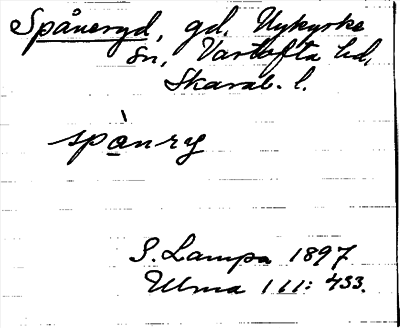 Spåneryd, gd, Nykyrke
sn, Vartofta hd,
Skarab. l.
spà̱nry
S. Lampa 1897
Ulma 111: 433.